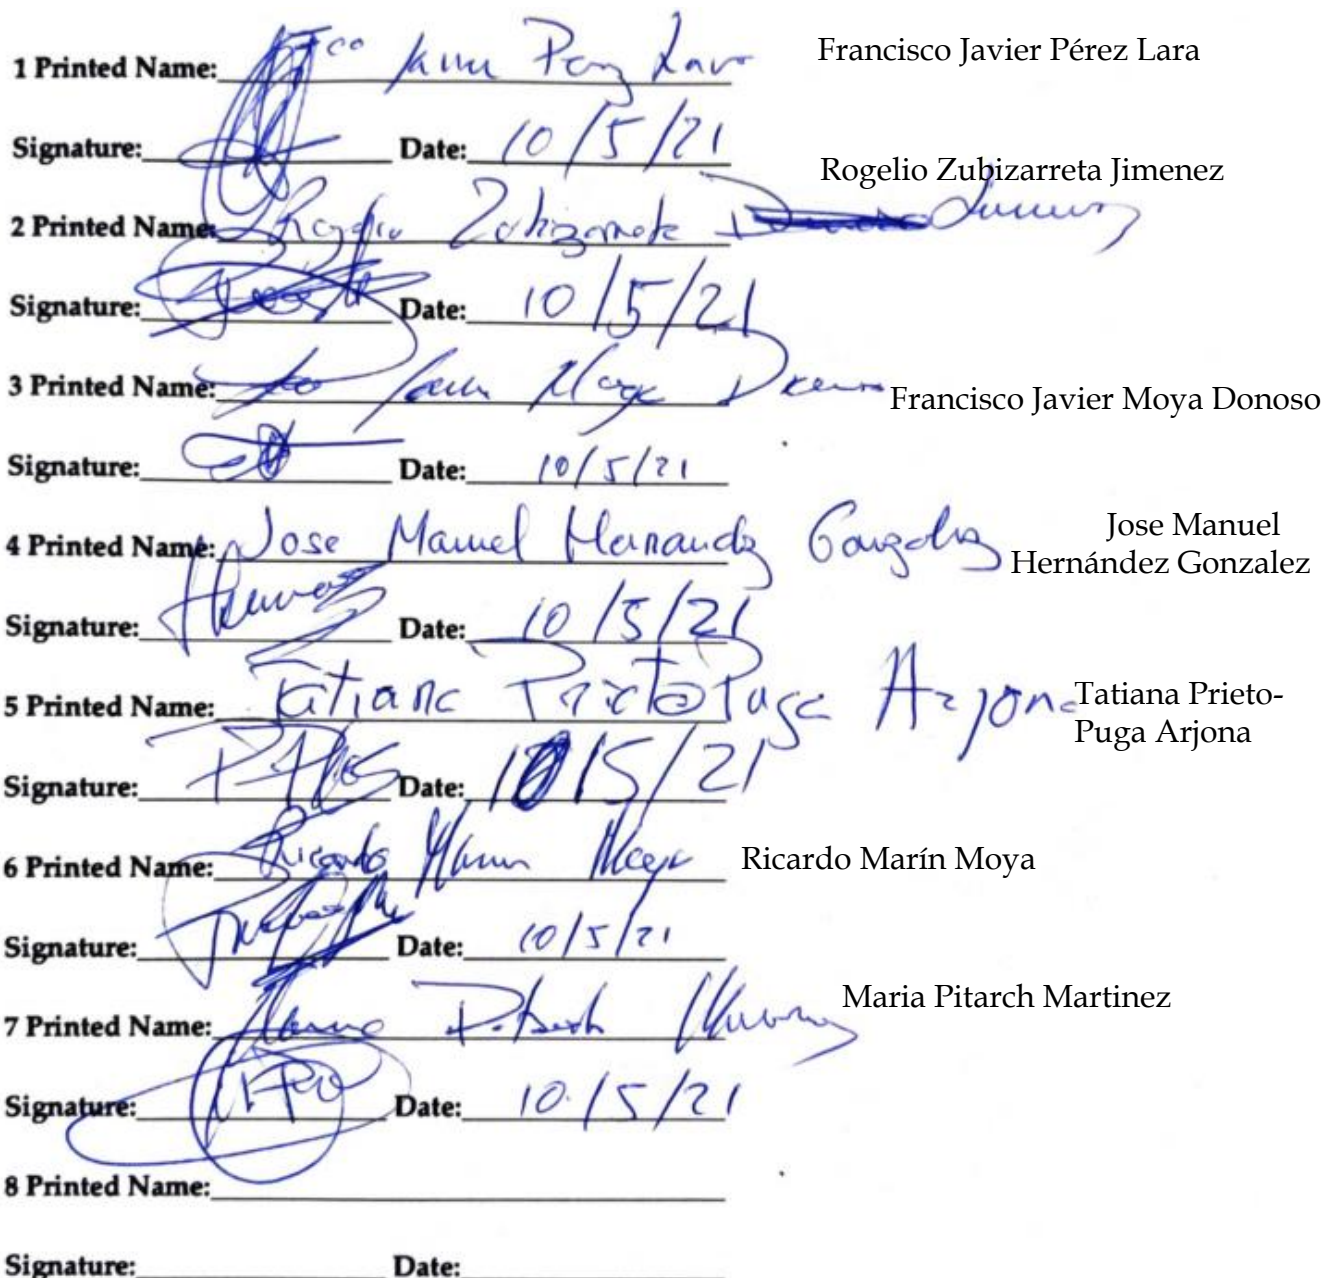 1 Printed Name: Fco Javier Perez Lara Francisco Javier Pérez Lara
Signature: Date: 10/5/21
Rogelio Zubizarreta Jimenez
2 Printed Name: Rogelio Zubizarreta Jimenez
Signature: Date: 10/5/21
3 Printed Name: Javier Moya Donoso Francisco Javier Moya Donoso
Signature: Date: 10/5/21
4 Printed Name: Jose Manuel Hernandez Gonzalez Jose Manuel
Hernández Gonzalez
Signature: Date: 10/5/21
5 Printed Name: Tatiana Prieto Puga Arjona Tatiana Prieto-
Puga Arjona
Signature: Date: 10/5/21
6 Printed Name: Ricardo Marin Moya Ricardo Marín Moya
Signature: Date: 10/5/21
7 Printed Name: Maria Pitarch Martinez Maria Pitarch Martinez
Signature: Date: 10/5/21
8 Printed Name:
Signature: Date: